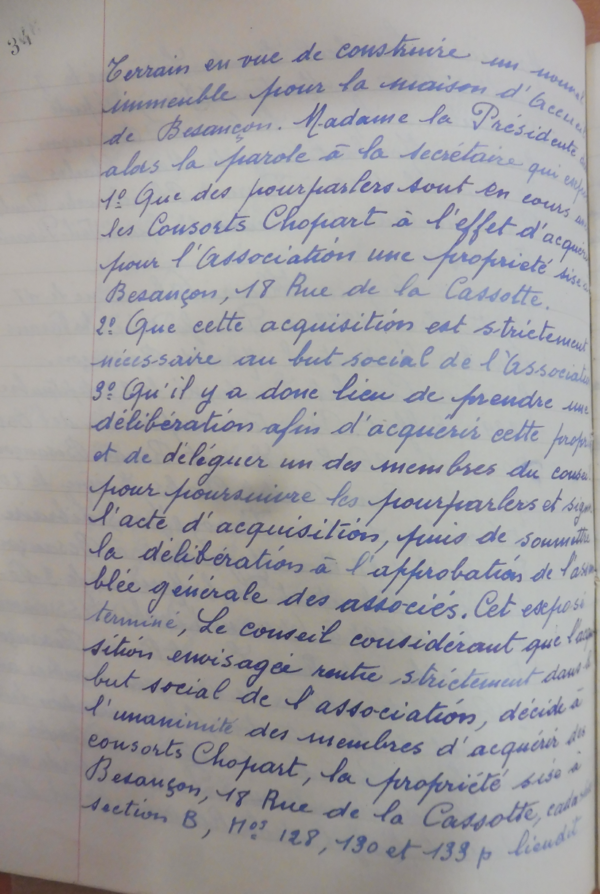 348
Terrain en vue de construire un nouvel
immeuble pour la maison d'Accueil
de Besançon. Madame la Présidente
alors la parole à la secrétaire qui
1º Que des pourparlers sont en cours
les Consorts Chopart à l'effet d'acquérir
pour l'Association une propriété sise
Besançon, 18 Rue de la Cassotte.
2º Que cette acquisition est strictement
nécessaire au but social de l'Association
3º Qu'il y a donc lieu de prendre une
délibération afin d'acquérir cette
et de déléguer un des membres du
pour poursuivre les pourparlers et
l'acte d'acquisition, puis de soumettre
la délibération à l'approbation de l'assem
blée générale des associés. Cet exposé
terminé, Le conseil considérant que
sition envisagée rentre strictement dans
but social de l'association, décide à
l'unanimité des membres d'acquérir des
consorts Chopart, la propriété sise à
Besançon, 18 Rue de la Cassotte,
section B, Nos 128, 130 et 133 p lieudit